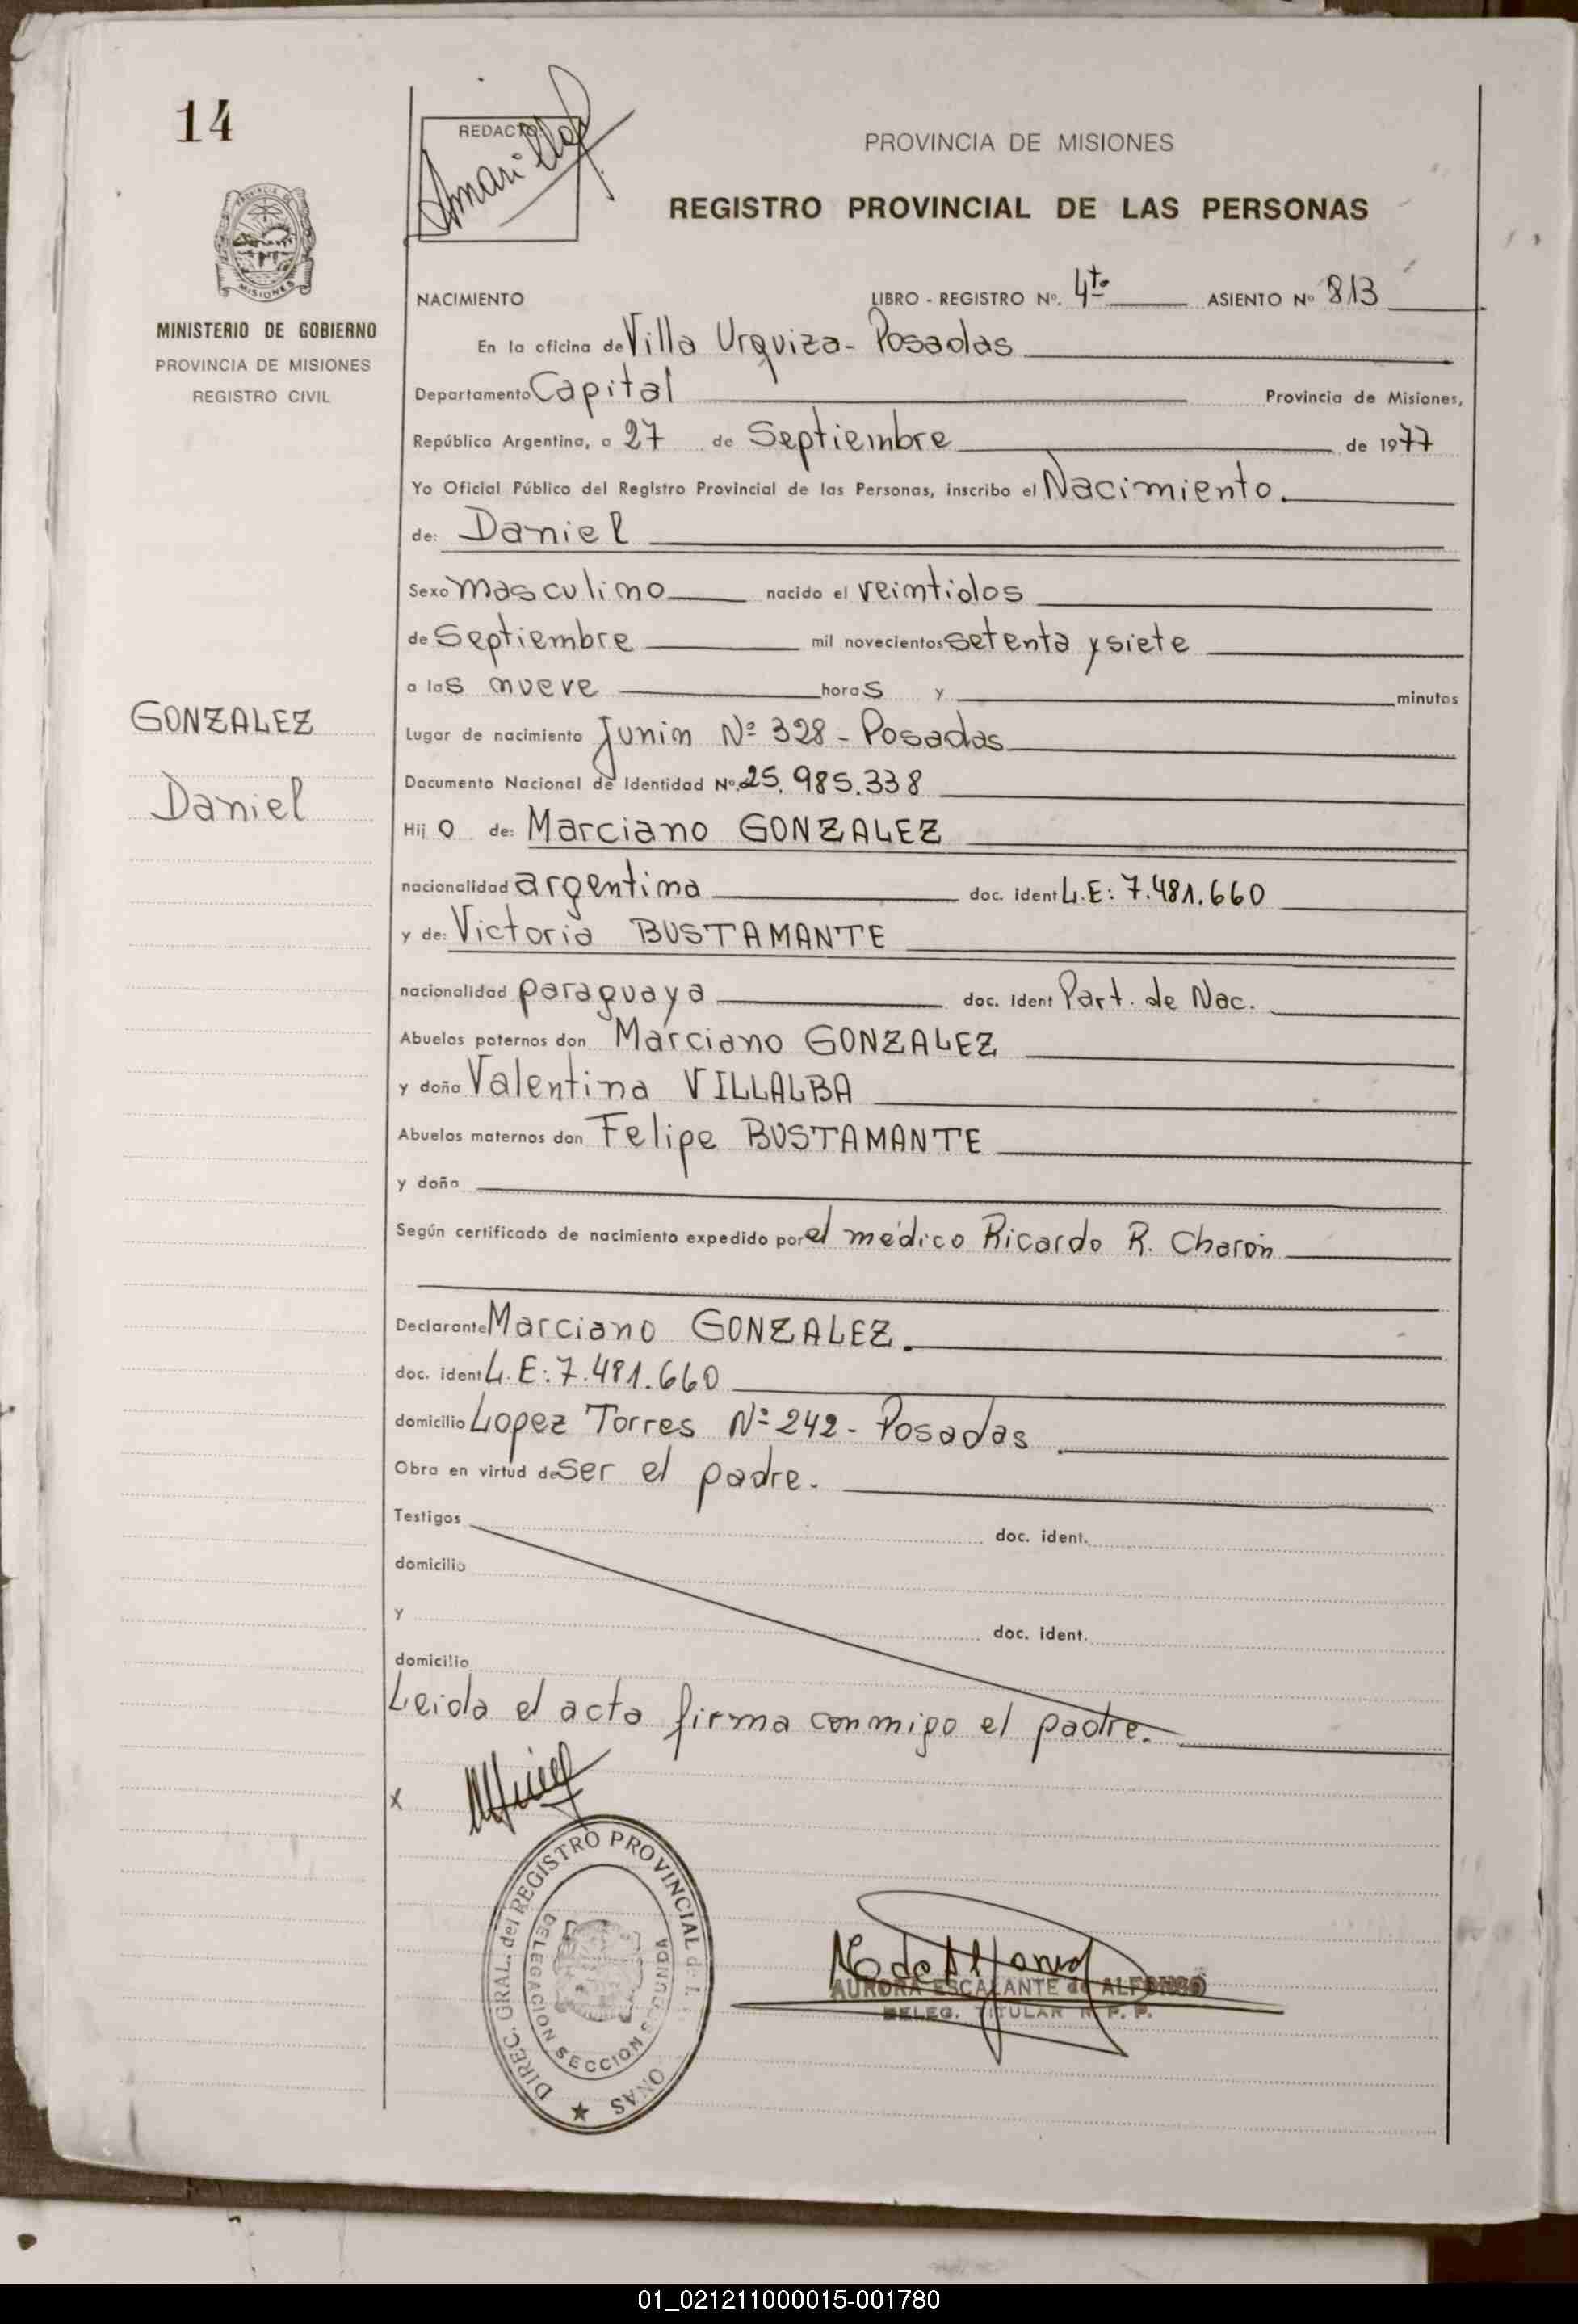 14
REDACTO:
Amarilla
PROVINCIA DE MISIONES
REGISTRO PROVINCIAL DE LAS PERSONAS
PROVINCIA DE
MISIONES
MINISTERIO DE GOBIERNO
PROVINCIA DE MISIONES
REGISTRO CIVIL
NACIMIENTO LIBRO - REGISTRO Nº. 4to ASIENTO Nº 813
En la oficina de Villa Urquiza - Posadas
Departamento Capital Provincia de Misiones,
República Argentina, a 27 de Septiembre de 1977
Yo Oficial Público del Registro Provincial de las Personas, inscribo el Nacimiento.
de: Daniel
Sexo masculino nacido el veintidos
de Septiembre mil novecientos setenta y siete
a las nueve horas y minutos
GONZALEZ
Daniel
Lugar de nacimiento Junin Nº 328 - Posadas
Documento Nacional de Identidad Nº. 25.985.338
Hijo de: Marciano GONZALEZ
nacionalidad argentina doc. ident L.E: 7.481.660
y de: Victoria BUSTAMANTE
nacionalidad paraguaya doc. ident Part. de Nac.
Abuelos paternos don Marciano GONZALEZ
y doña Valentina VILLALBA
Abuelos maternos don Felipe BUSTAMANTE
y doña
Según certificado de nacimiento expedido por el médico Ricardo R. Charón
Declarante Marciano GONZALEZ.
doc. ident L.E: 7.481.660
domicilio Lopez Torres Nº 242 - Posadas
Obra en virtud de ser el padre.
Testigos doc. ident.
domicilio
y doc. ident.
domicilio
Leida el acta firma conmigo el padre.
x
DIREC. GRAL. del REGISTRO PROVINCIAL de L ONAS
DELEGACION SECCION SEGUNDA
AURORA ESCALANTE de ALFONSO
DELEG. TITULAR R. P. P.
01_021211000015-001780